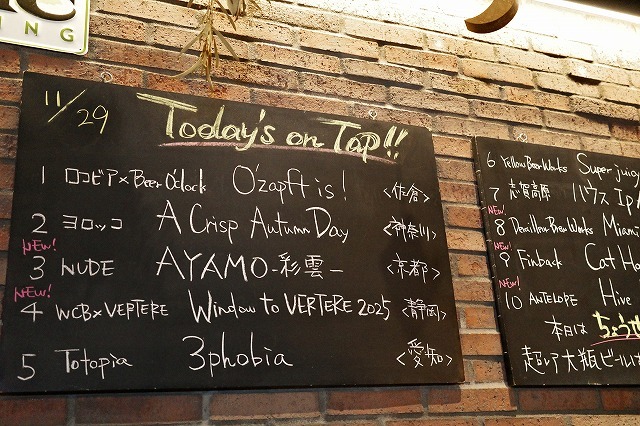 ING
11/29
Today's on Tap!!
1 ロコビア×Beer O'clock O'zapft is! <佐倉>
2 ヨロッコ A Crisp Autumn Day <神奈川>
NEW!
3 NUDE AYAMO-彩雲- <京都>
NEW!
4 WCB×VERTERE Window to VERTERE 2025 <静岡>
5 Totopia 3phobia <愛知>
6 Yellow Beer Works Super juicy
7 志賀高原 ハウス IPA
NEW!
8 Derailleur Brew Works Miami
NEW!
9 Finback Cat
NEW!
10 ANTELOPE Hive
本日は ちょうせ
超レア大瓶ビール